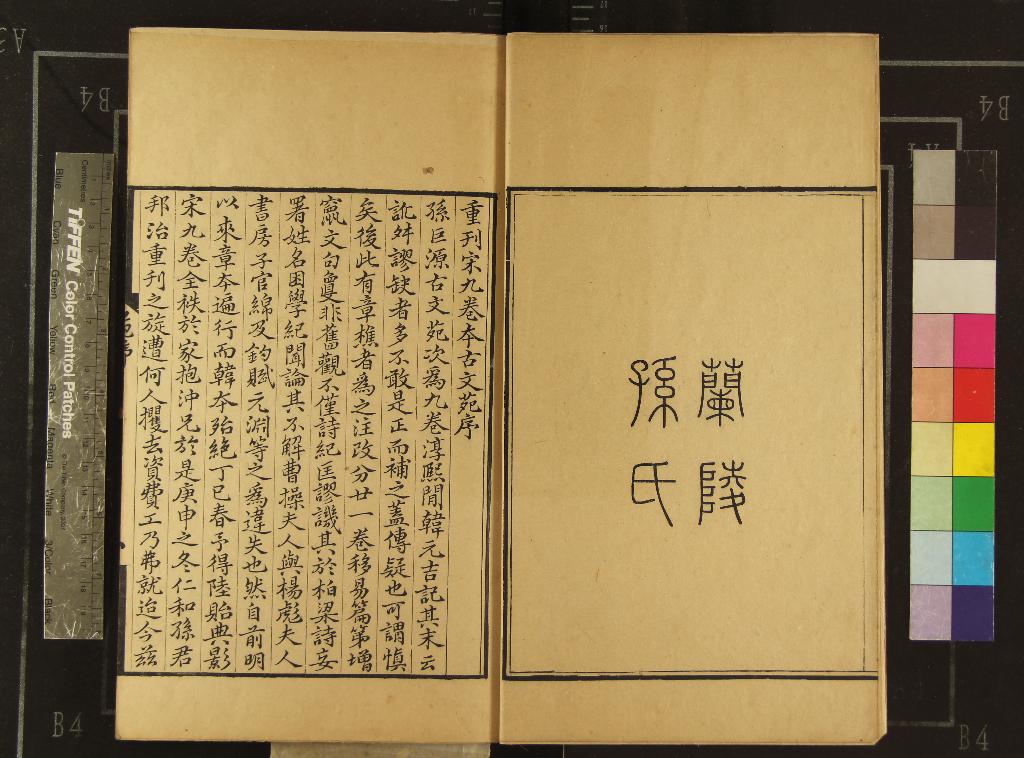 蘭陵
孫氏
重刊宋九卷本古文苑序
孫巨源古文苑次爲九卷淳熙閒韓元吉記其末云
訛舛謬缺者多不敢是正而補之蓋傳疑也可謂愼
矣後此有章樵者爲之注改分廿一卷移易篇第增
竄文句敻非舊觀不僅詩紀匡謬譏其於柏梁詩妄
署姓名困學紀聞論其不解曹操夫人與楊彪夫人
書房子官綿及釣賦元淵等之爲違失也然自前明
以來章本遍行而韓本殆絕丁巳春予得陸貽典影
宋九卷全袟於家抱沖兄於是庚申之冬仁和孫君
邦治重刊之旋遭何人攫去資費工乃弗就迨今茲
TIFFEN Color Control Patches
Centimetres
Blue
Cyan
Green
Yellow
Red
Magenta
White
3/Color
Black
B4
B4
B4
B4
A3
A4